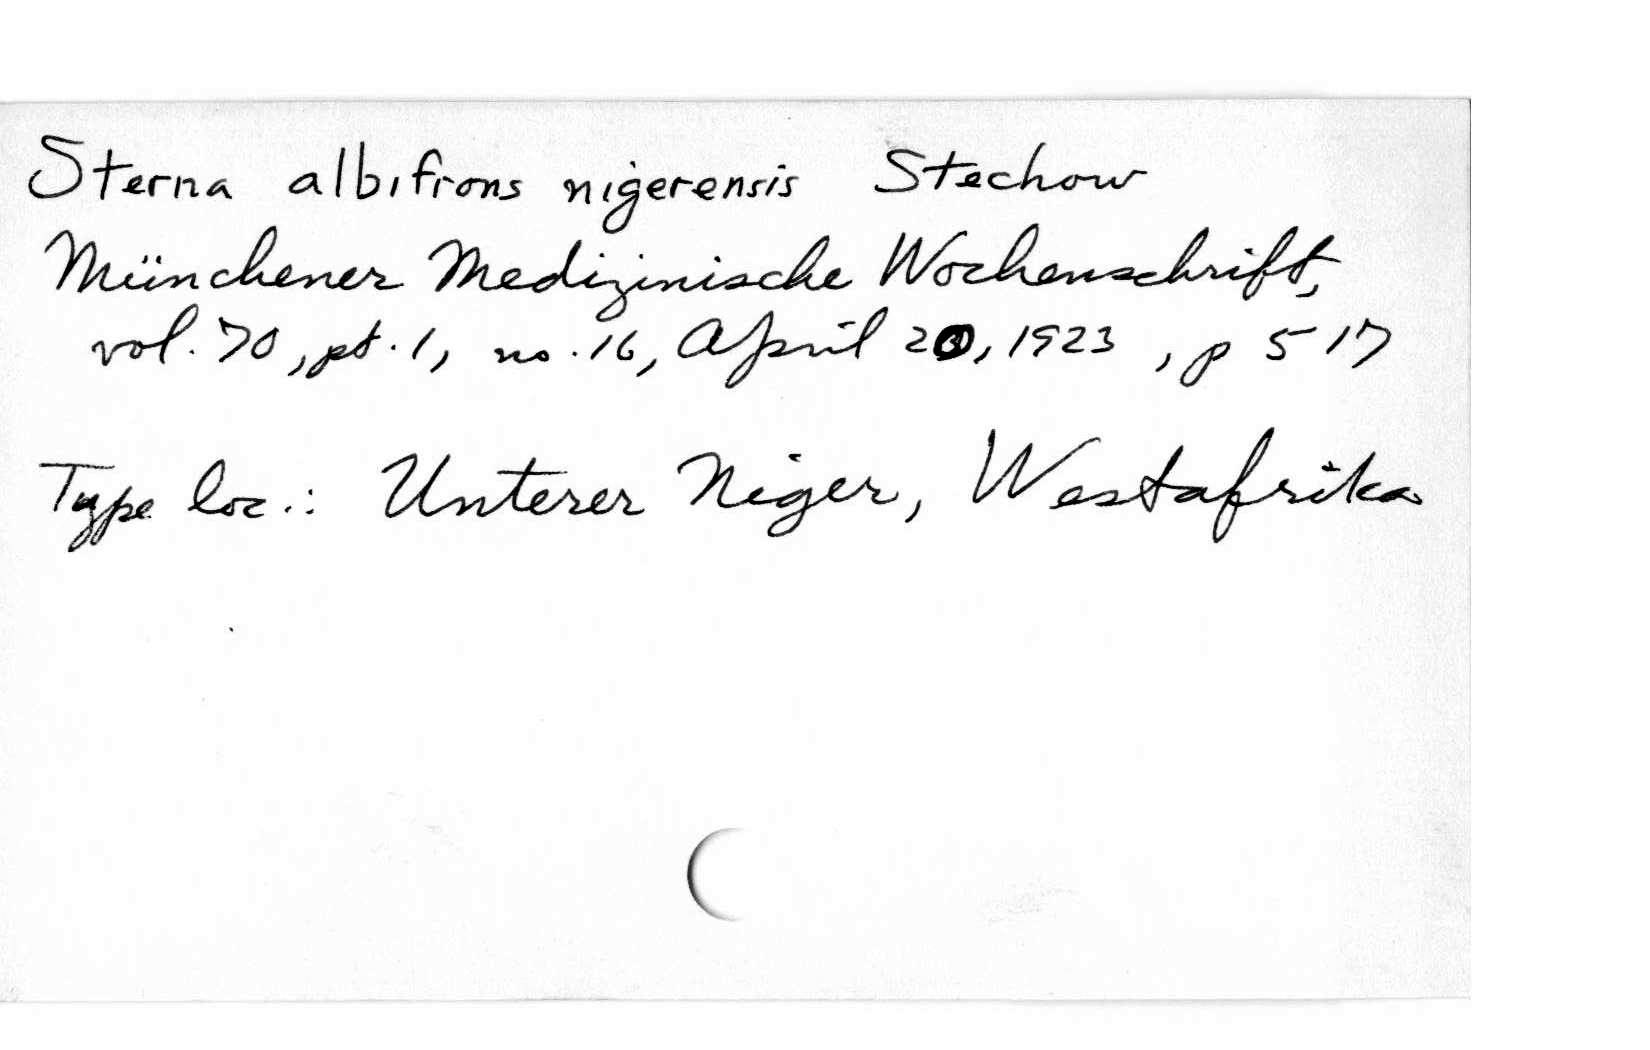 Sterna albifrons nigerensis Stechow
Münchener Medizinische Wochenschrift,
vol. 70, pt. 1, no. 16, April 20, 1923, p 517
Type loc.: Unterer Niger, Westafrika